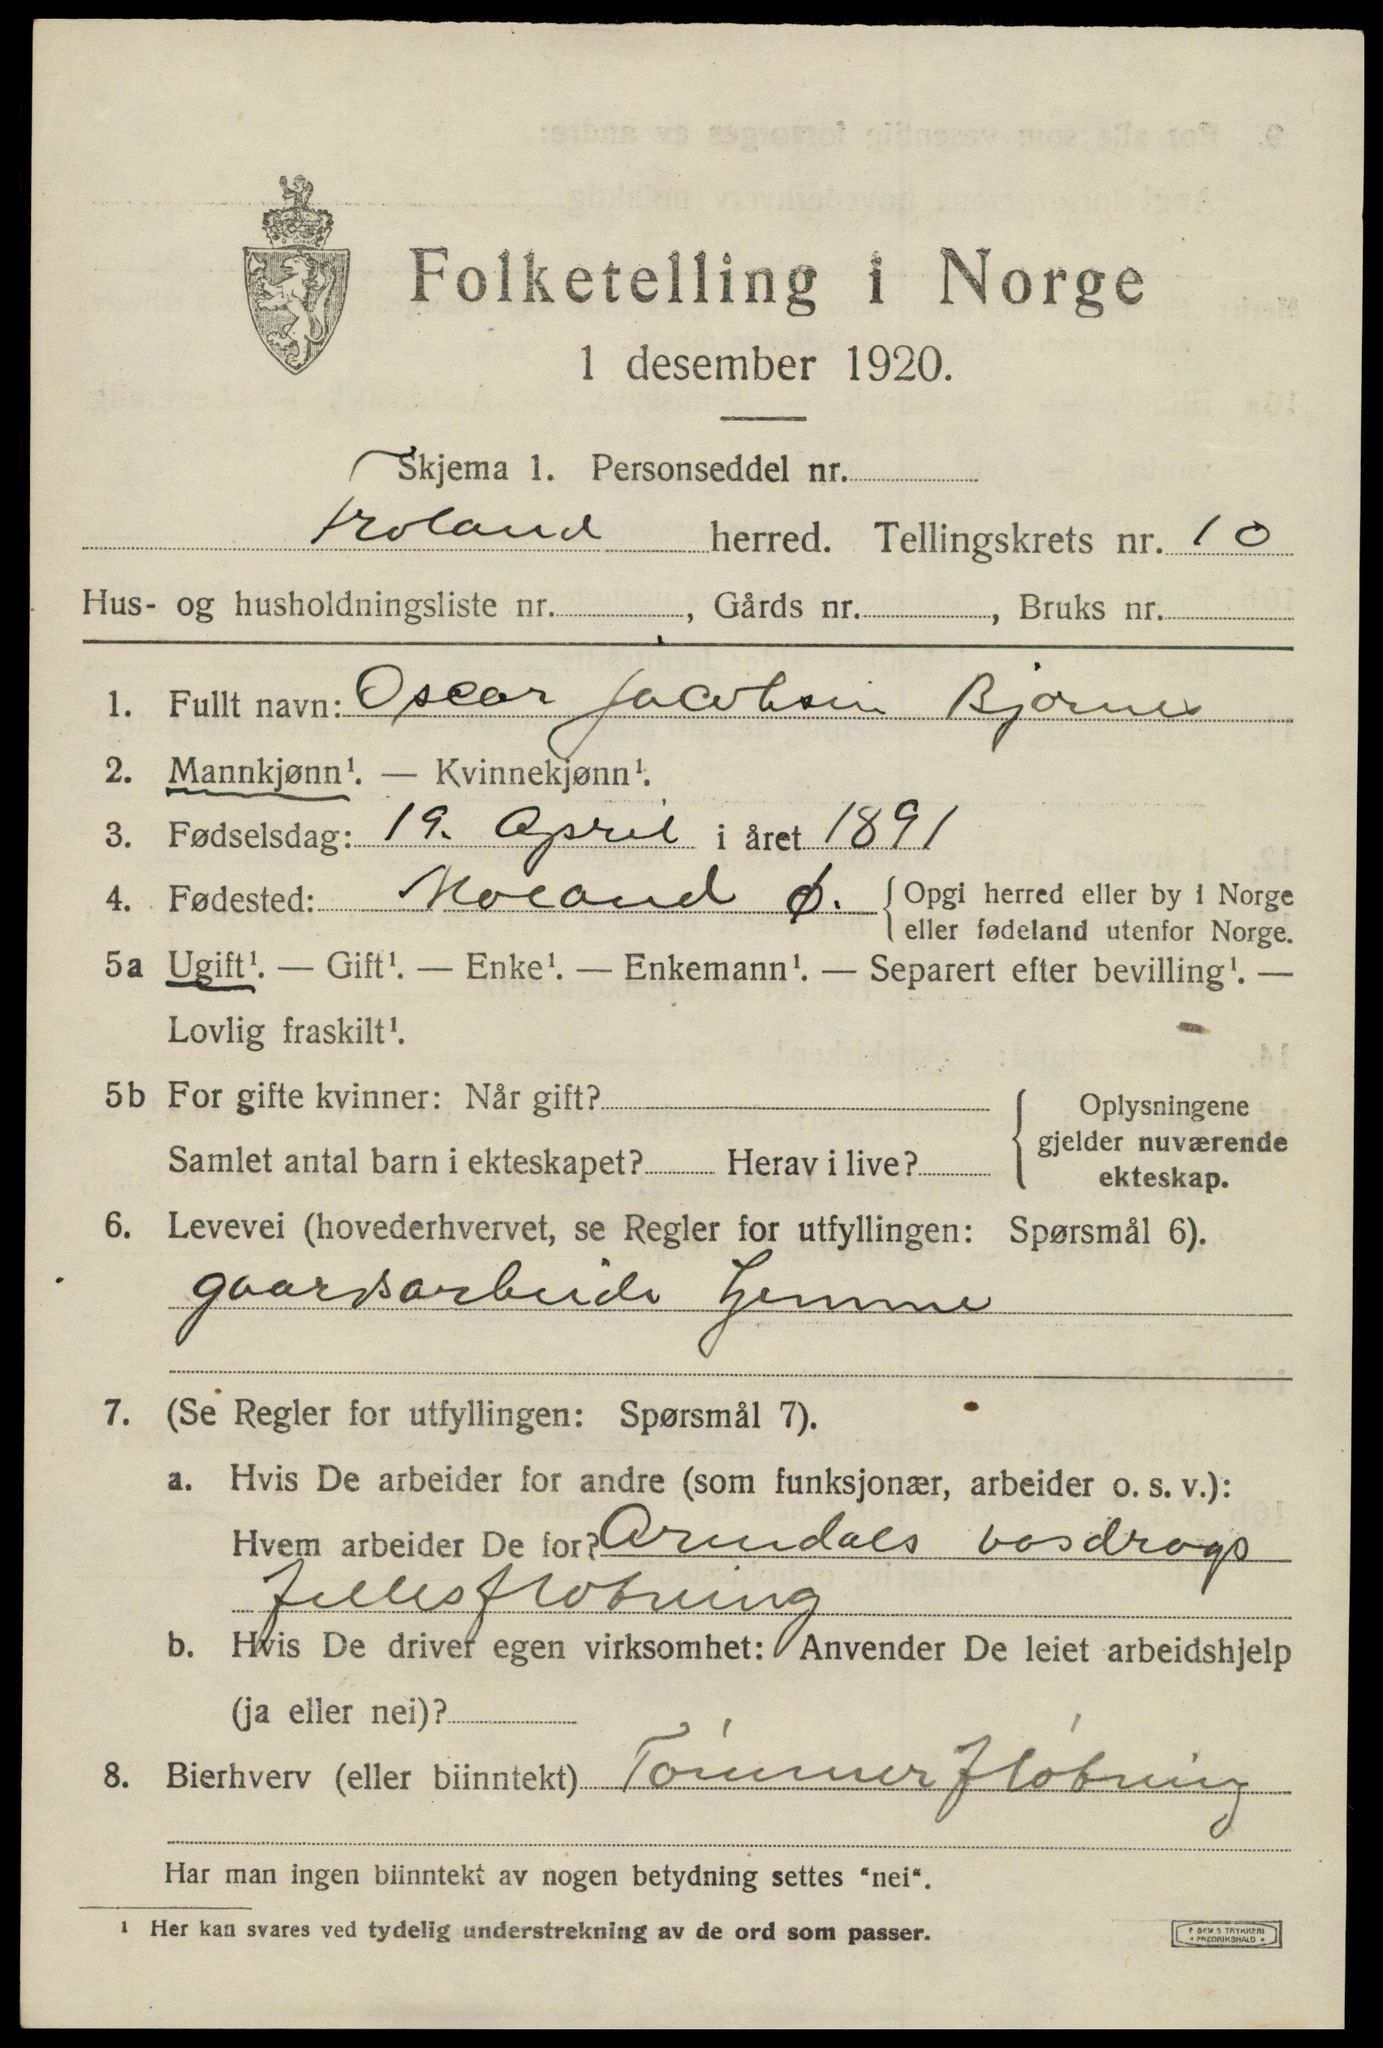 Folketelling i Norge
1 desember 1920.
Skjema 1. Personseddel nr.
Froland herred. Tellingskrets nr. 10
Hus- og husholdningsliste nr. , Gårds nr. , Bruks nr.
1. Fullt navn: Oscar Jacobsen
2. Mannkjønn¹. — Kvinnekjønn¹.
3. Fødselsdag: 19. April i året 1891
4. Fødested: Moland Ø. {Opgi herred eller by i Norge
eller fødeland utenfor Norge.
5a Ugift¹. — Gift¹. — Enke¹. — Enkemann¹. — Separert efter bevilling¹. —
Lovlig fraskilt¹.
5b For gifte kvinner: Når gift?
Samlet antal barn i ekteskapet? Herav i live?
Oplysningene
gjelder nuværende
ekteskap.
6. Levevei (hovederhvervet, se Regler for utfyllingen: Spørsmål 6).
gaardsarbeide hjemme
7. (Se Regler for utfyllingen: Spørsmål 7).
a. Hvis De arbeider for andre (som funksjonær, arbeider o. s. v.):
Hvem arbeider De for? Arendals vasdrags
fellesfløtning
b. Hvis De driver egen virksomhet: Anvender De leiet arbeidshjelp
(ja eller nei)?
8. Bierhverv (eller biinntekt) Tømmerfløtning
Har man ingen biinntekt av nogen betydning settes "nei".
¹ Her kan svares ved tydelig understrekning av de ord som passer.
TRYKKERI
FREDRIKSHALD